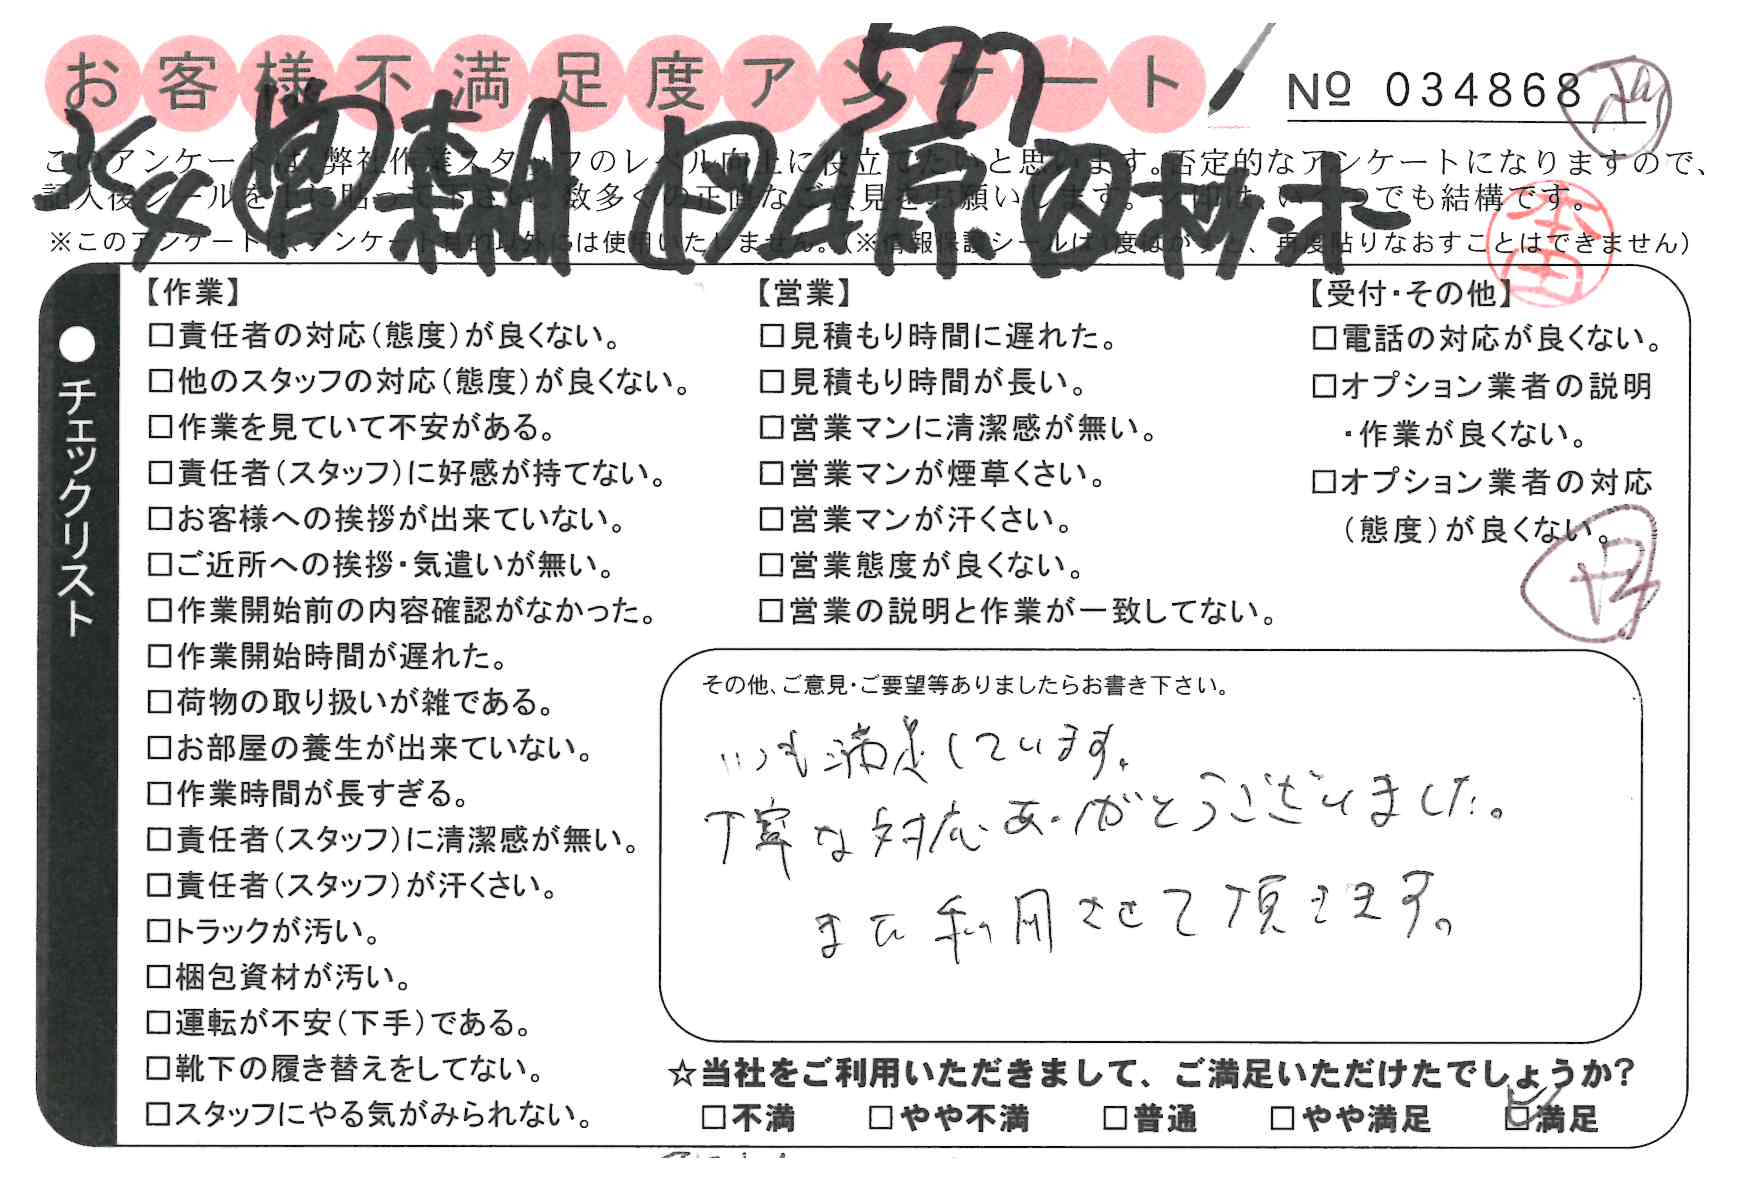 お客様不満足度アンケート
577
№ 034868
3/4
このアンケートは、弊社作業スタッフのレベル向上に役立てたいと思います。否定的なアンケートになりますので、
記入後シールを上に貼って下さい。数多くの正直なご意見をお願いします。レ印は、いくつでも結構です。
※このアンケートは、アンケート目的以外には使用いたしません。（※情報保護シールは1度はがすと、再度貼りなおすことはできません）
●チェックリスト
【作業】
□責任者の対応（態度）が良くない。
□他のスタッフの対応（態度）が良くない。
□作業を見ていて不安がある。
□責任者（スタッフ）に好感が持てない。
□お客様への挨拶が出来ていない。
□ご近所への挨拶・気遣いが無い。
□作業開始前の内容確認がなかった。
□作業開始時間が遅れた。
□荷物の取り扱いが雑である。
□お部屋の養生が出来ていない。
□作業時間が長すぎる。
□責任者（スタッフ）に清潔感が無い。
□責任者（スタッフ）が汗くさい。
□トラックが汚い。
□梱包資材が汚い。
□運転が不安（下手）である。
□靴下の履き替えをしてない。
□スタッフにやる気がみられない。
【営業】
□見積もり時間に遅れた。
□見積もり時間が長い。
□営業マンに清潔感が無い。
□営業マンが煙草くさい。
□営業マンが汗くさい。
□営業態度が良くない。
□営業の説明と作業が一致してない。
【受付・その他】
□電話の対応が良くない。
□オプション業者の説明
・作業が良くない。
□オプション業者の対応
（態度）が良くない。
その他、ご意見・ご要望等ありましたらお書き下さい。
いつも満足しています。
丁寧な対応ありがとうございました。
また利用させて頂きます。
☆当社をご利用いただきまして、ご満足いただけたでしょうか？
□不満 □やや不満 □普通 □やや満足 ☑満足